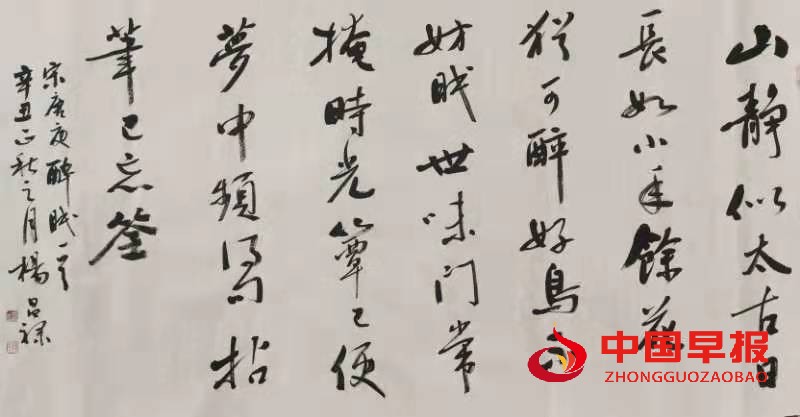 山静似太古日
長如小年餘花
猶可醉好鳥不
妨眠世味門常
掩時光簟已便
夢中頻得句拈
筆已忘筌
宋唐庚醉眠一首
辛丑正秋之月楊
中国早报
ZHONGGUOZAOBAO